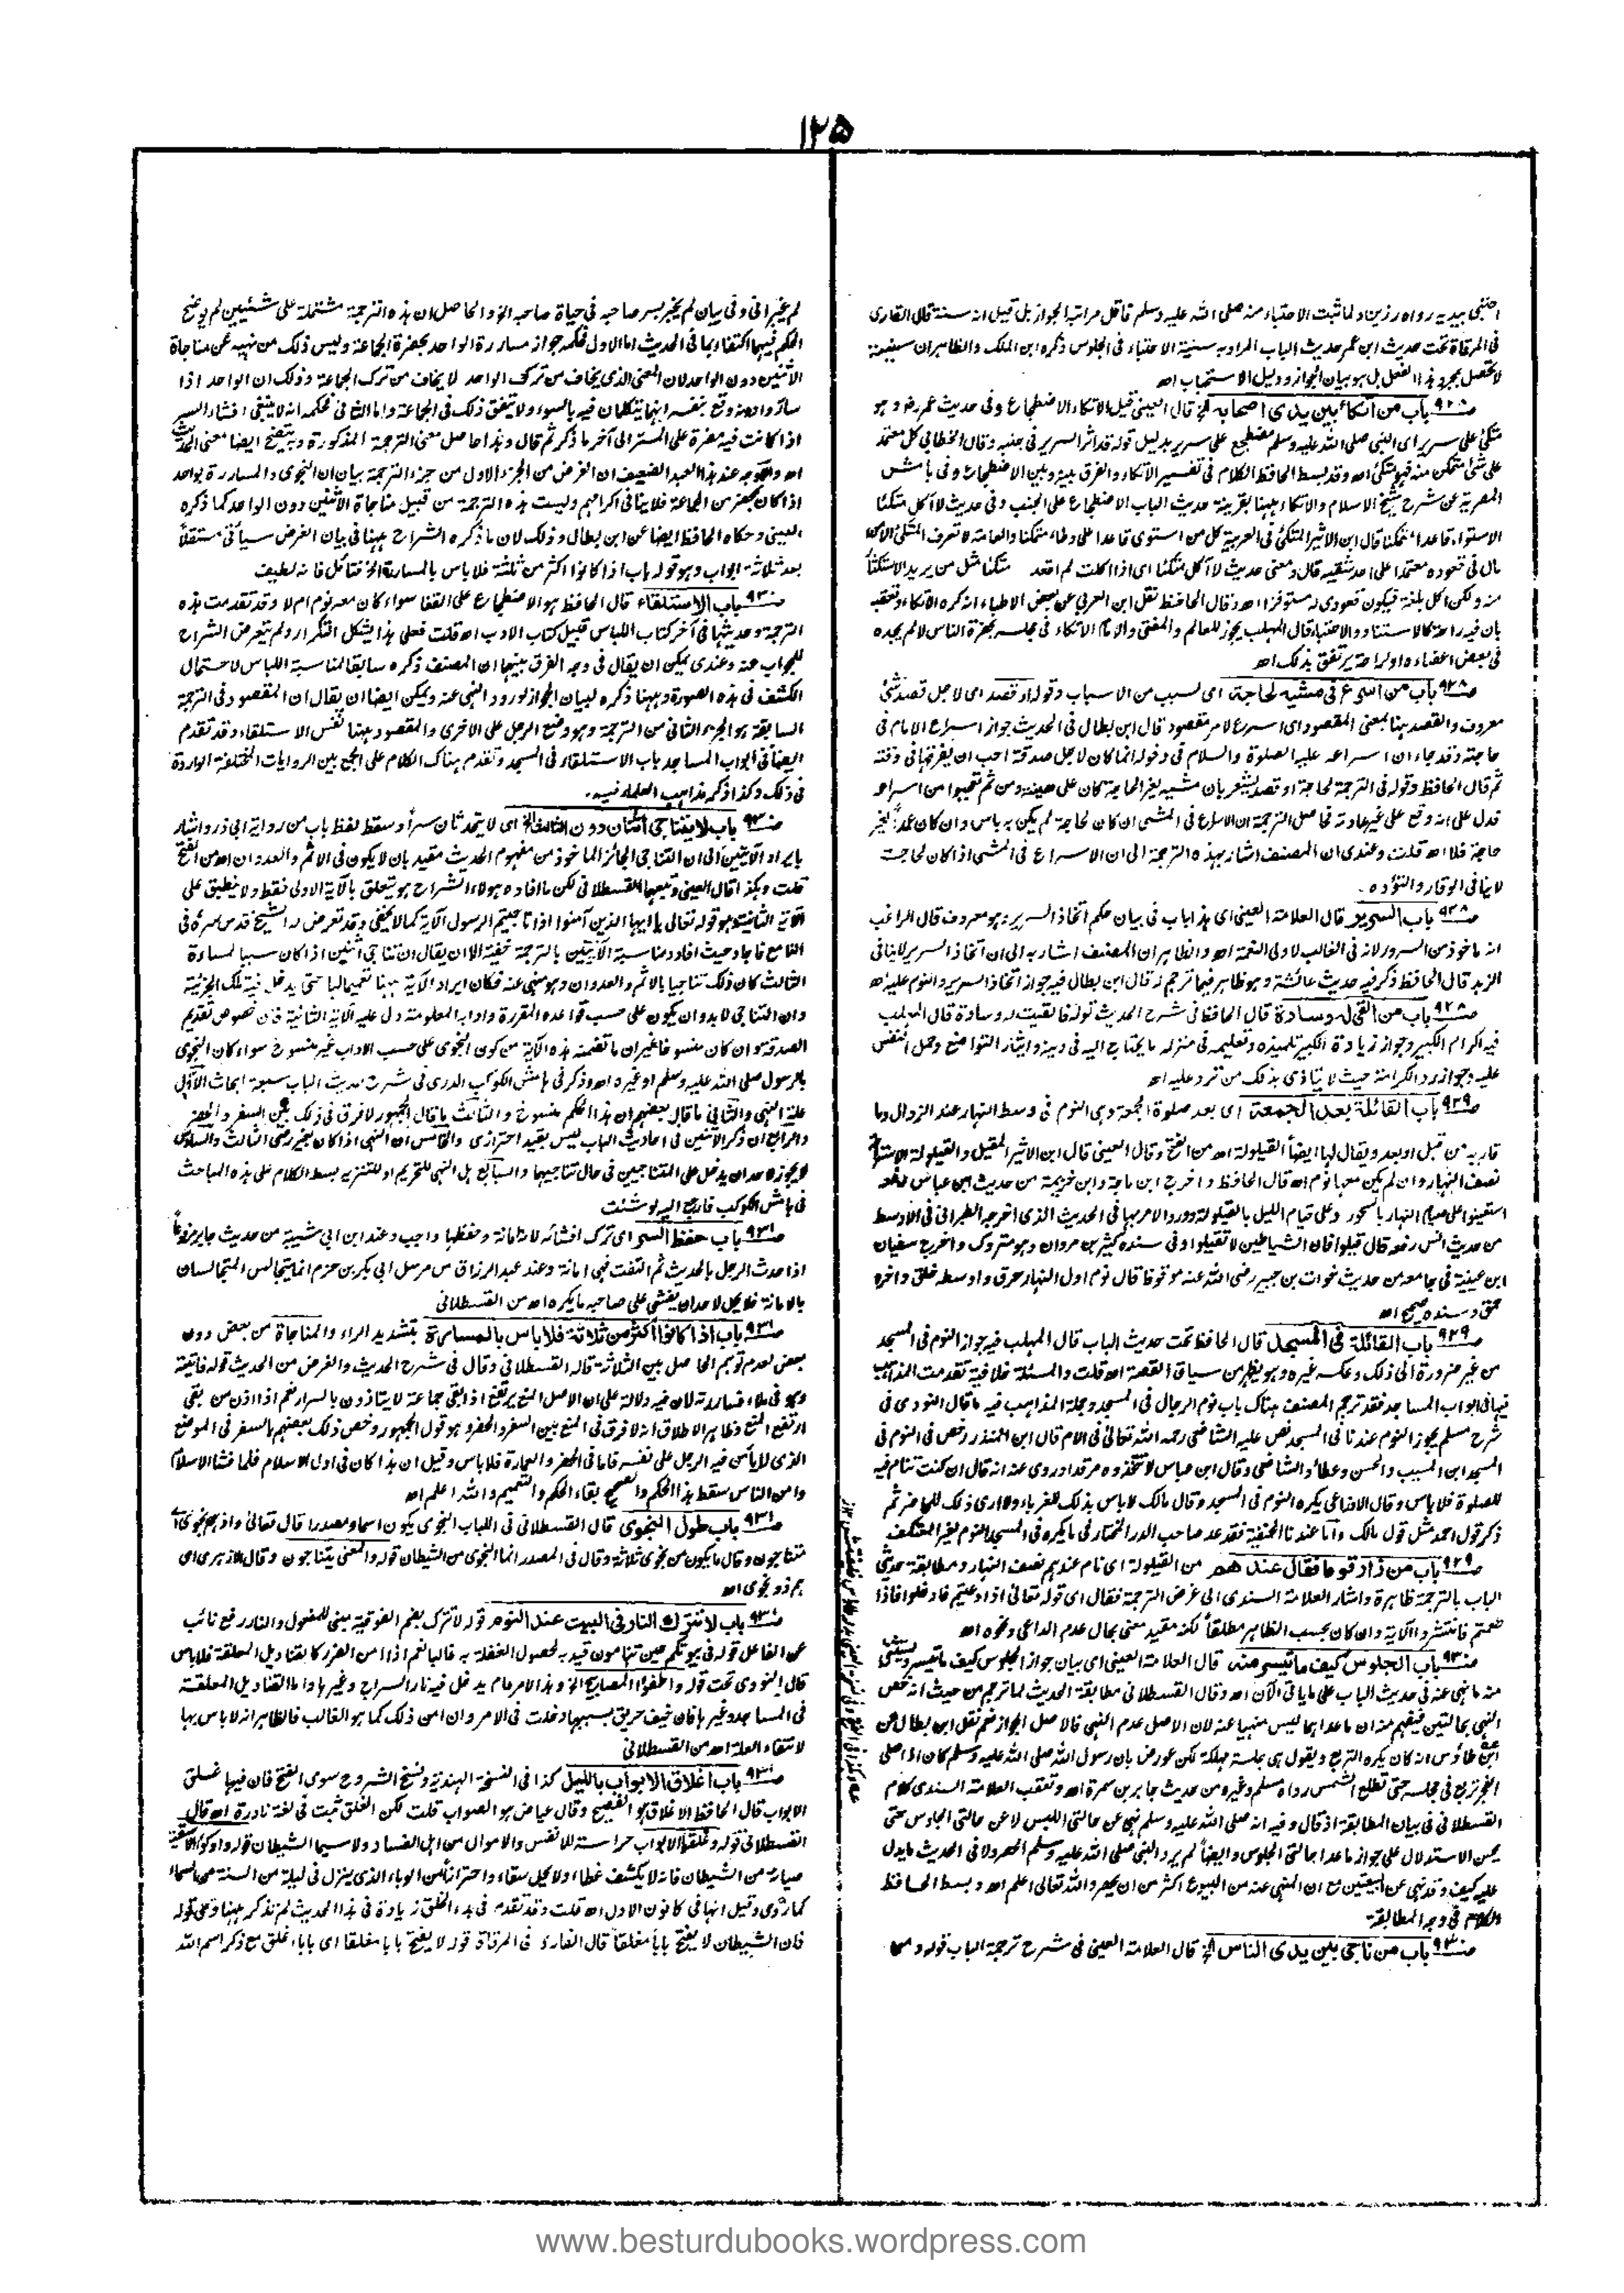 ۱۲۵
احتبى بيديه رواه رزين ولما ثبت الاحتباء منه صلى الله عليه وسلم فاقل مراتبه الجواز بل قيل انه سنة قال القارى
فى المرقاة تحت حديث ابن عمر حديث الباب المراد به سنية الاحتباء فى الجلوس ذكره ابن الملك والظاهر ان سنيته
لا تحصل بمجرد هذا الفعل بل هو بيان الجواز ودليل الاستحباب اه
ص۹۲۸ باب من اتكأ بين يدى اصحابه الخ قال العينى قيل الاتكاء الاضطجاع وفى حديث عمر رضه وهو
متكئ على سرير اى النبى صلى الله عليه وسلم مضطجع على سرير بدليل قوله قد اثر السرير فى جنبه وقال الخطابى كل معتمد
على شئ متمكن منه فهو متكئ اه وقد بسط الحافظ الكلام فى تفسير الاتكاء والفرق بينه وبين الاضطجاع وفى هامش
المصرية عن شرح شيخ الاسلام والاتكاء ههنا بقرينة حديث الباب الاضطجاع على الجنب وفى حديث لا آكل متكئا
الاستواء قاعدا متمكنا قال ابن الأثير المتكئ فى العربية كل من استوى قاعدا على وطاء متمكنا والعامة لا تعرف المتكئ الا من
مال فى قعوده معتمدا على احد شقيه قال ومعنى حديث لا آكل متكئا اى اذا اكلت لم اقعد متمكنا مثل من يريد الاستكثار
منه ولكن اكل بلغة فيكون قعودى له مستوفزا اه وقال الحافظ نقل ابن العربى عن بعض الاطباء انه كره الاتكاء وتعقبه
بان فيه راحة كالاستناد والاحتباء قال المهلب يجوز للعالم والمفتى والامام الاتكاء فى مجلسه بحضرة الناس لالم يجده
فى بعض اعضاءه او لراحة يرتفق بذلك اه
ص۹۲۸ باب من اسرع فى مشيه لحاجة اى لسبب من الاسباب وقوله او قصد اى لاجل قصد شئ
معروف والقصد هنا بمعنى المقصود اى اسرع لامر مقصود قال ابن بطال فى الحديث جواز اسراع الامام فى
حاجته وقد جاء ان اسراعه عليه الصلوة والسلام فى دخوله انما كان لاجل صدقة احب ان يفرقها فى وقته
ثم قال الحافظ وقوله فى الترجمة لحاجة او قصد يشعر بان مشيه لغير الحاجة كان على هينته ومن ثم تعجبوا من اسراعه
فدل على انه وقع على غير عادته فحاصل الترجمة ان الاسراع فى المشى ان كان لحاجة لم يكن به باس وان كان عمدا لغير
حاجة فلا اه قلت وعندى ان المصنف اشار بهذه الترجمة الى ان الاسراع فى المشى اذا كان لحاجت
لا ينافى الوقار والتؤده ۔
ص۹۲۸ باب السرير قال العلامة العينى اى هذا باب فى بيان حكم اتخاذ السرير وهو معروف قال الراغب
انه ماخوذ من السرور لانه فى الغالب لاولى النعمة اه والظاهر ان المصنف اشار به الى ان اتخاذ السرير لا ينافى
الزهد قال الحافظ ذكر فيه حديث عائشة وهو ظاهر فيما ترجم له قال ابن بطال فيه جواز اتخاذ السرير والنوم عليه اه
ص۹۲۸ باب من القى له وسادة قال الحافظ فى شرح الحديث قوله فالقيت له وسادة قال المهلب
فيه اكرام الكبير وجواز زيادة الكبير تلميذه وتعليمه فى منزله ما يحتاج اليه فى دينه وايثار التواضع وحمل النفس
عليه وجواز رد الكرامة حيث لا يتاذى بذلك من ترد عليه اه
ص۹۲۹ باب القائلة بعد الجمعة اى بعد صلوة الجمعة وهى النوم فى وسط النهار عند الزوال وما
قاربه من قبل او بعد ويقال لها ايضا القيلولة اه من الفتح وقال العينى قال ابن الاثير المقيل والقيلولة الاستراحة
نصف النهار وان لم يكن معها نوم اه قال الحافظ واخرج ابن ماجة وابن خزيمة من حديث ابن عباس رفعه
استعينوا على صيام النهار بالسحور وعلى قيام الليل بالقيلولة وورد الامر بها فى الحديث الذى اخرجه الطبرانى فى الاوسط
من حديث انس رفعه قال قيلوا فان الشياطين لا تقيل اه وفى سنده كثير بن مروان وهو متروك واخرج سفيان
ابن عيينة فى جامعه من حديث خوات بن جبير رضى الله عنه موقوفا قال نوم اول النهار حرق واوسطه خلق واخره
حمق وسنده صحيح اه
ص۹۲۹ باب القائلة فى المسجد قال الحافظ تحت حديث الباب قال المهلب فيه جواز النوم فى المسجد
من غير ضرورة الى ذلك وعكسه غيره وهو يظهر من سياق القصة اه قلت والمسئلة خلافية تقدمت المذاهب
فيها فى ابواب المساجد فقد ترجم المصنف هناك باب نوم الرجال فى المسجد وجملة المذاهب فيه ما قال النووى فى
شرح مسلم يجوز النوم عندنا فى المسجد نص عليه الشافعى رحمه الله تعالى فى الام قال ابن المنذر رخص فى النوم فى
المسجد ابن المسيب والحسن وعطاء والشافعى وقال ابن عباس لا تتخذوه مرقدا وروى عنه انه قال ان كنت تنام فيه
للصلوة فلا باس وقال الاوزاعى يكره النوم فى المسجد وقال مالك لا باس بذلك للغرباء ولا ارى ذلك للحاضر ثم
ذكر قول احمد مثل قول مالك واما عندنا الحنفية فقد عد صاحب الدر المختار فى ما يكره فى المسجد النوم لغير المعتكف
ص۹۲۹ باب من زار قوما فقال عندهم من القيلولة اى نام عندهم نصف النهار ومطابقة حديثى
الباب بالترجمة ظاهرة واشار العلامة السندى الى غرض الترجمة فقال اى قوله تعالى اذا دعيتم فادخلوا فاذا
طعمتم فانتشروا الآية وان كان بحسب الظاهر مطلقا لكنه مقيد معنى بحال عدم الداعى ونحوه اه
ص۹۳۰ باب الجلوس كيف ما تيسر منه قال العلامة العينى اى بيان جواز الجلوس كيف ما تيسر ويستثنى
منه ما نهى عنه فى حديث الباب على ما ياتى الآن اه وقال القسطلانى مطابقة الحديث لما ترجم من حيث انه خص
النهى بحالتين فيفهم منه ان ما عداهما ليس منهيا عنه لان الاصل عدم النهى فالاصل الجواز نعم نقل ابن بطال عن
ابن طاؤس انه كان يكره التربع ويقول هى جلسة مهلكة لكن عورض بان رسول الله صلى الله عليه وسلم كان اذا صلى
الفجر تربع فى مجلسه حتى تطلع الشمس رواه مسلم وغيره من حديث جابر بن سمرة اه وتعقب العلامة السندى كلام
القسطلانى فى بيان المطابقة اذ قال وفيه انه صلى الله عليه وسلم نهى عن حالتى اللبس لا عن حالتى الجلوس حتى
يحسن الاستدلال على جواز ما عدا حالتى الجلوس وايضا لم يرد النبى صلى الله عليه وسلم الحصر ولا فى الحديث ما يدل
عليه كيف وقد نهى عن البيعتين مع ان المنهى عنه من البيوع اكثر من ان يحصر والله تعالى اعلم اه وبسط الحافظ
الكلام فى وجه المطابقة
ص۹۳۰ باب من ناجى بين يدى الناس الخ قال العلامة العينى فى شرح ترجمة الباب قوله ومن
لم يخبر الخ وفى بيان لم يخبر بسر صاحبه فى حياة صاحبه الخ والحاصل ان هذه الترجمة مشتملة على شيئين لم يوضح
الحكم فيهما اكتفاء بما فى الحديث اما الاول فحكمه جواز مساررة الواحد بحضرة الجماعة وليس ذلك من نهيه عن مناجاة
الاثنين دون الواحد لان المعنى الذى يخاف من ترك الواحد لا يخاف من ترك الجماعة وذلك ان الواحد اذا
سارّوا دونه وقع بنفسه انهما يتكلمان فيه بالسوء ولا يتفق ذلك فى الجماعة واما الثانى فحكمه انه لا ينبغى افشاء السر
اذا كانت فيه مضرة على المسر الى آخر ما ذكر ثم قال وهذا حاصل معنى الترجمة المذكورة وبه يتضح ايضا معنى الحديث
اه والاوجه عند هذا العبد الضعيف ان الغرض من الجزء الاول من جزء الترجمة بيان ان النجوى والمساررة بواحد
اذا كان بمحضر من الجماعة فلا ينافى اكرامهم وليست هذه الترجمة من قبيل مناجاة الاثنين دون الواحد كما ذكره
العينى وحكاه الحافظ ايضا عن ابن بطال وذلك لان ما ذكره الشراح ههنا فى بيان الغرض سيأتى مستقلا
بعد ثلاثة ابواب وهو قوله باب اذا كانوا اكثر من ثلثة فلا باس بالمسارة الخ فتأمل فانه لطيف
ص۹۳۰ باب الاستلقاء قال الحافظ هو الاضطجاع على القفا سواء كان معه نوم ام لا وقد تقدمت هذه
الترجمة وحديثها فى آخر كتاب اللباس قبيل كتاب الادب اه قلت فعلى هذا يشكل التكرار ولم يتعرض الشراح
للجواب عنه وعندى يمكن ان يقال فى وجه الفرق بينهما ان المصنف ذكره سابقا لمناسبة اللباس لاحتمال
الكشف فى هذه الصورة وههنا ذكره لبيان الجواز لورود النهى عنه ويمكن ايضا ان يقال ان المقصود فى الترجمة
السابقة هو الجزء الثانى من الترجمة وهو وضع الرجل على الاخرى والمقصود ههنا نفس الاستلقاء وقد تقدم
ايضا فى ابواب المساجد باب الاستلقاء فى المسجد وتقدم هناك الكلام على الجمع بين الروايات المختلفة الواردة
فى ذلك وكذا ذكر مذاهب العلماء فيه۔
ص۹۳۰ باب لا يتناجى اثنان دون الثالث الخ اى لا يتحدثان سرا وسقط لفظ باب من رواية ابى ذر واشار
بايراد الآيتين الى ان التناجى الجائز الماخوذ من مفهوم الحديث مقيد بان لا يكون فى الاثم والعدوان اه من الفتح
قلت وهكذا قال العينى وتبعهما القسطلانى لكن ما افاده هولاء الشراح هو يتعلق بالآية الاولى فقط ولا ينطبق على
الآية الثانية وهو قوله تعالى يا ايها الذين آمنوا اذا ناجيتم الرسول الآية كما لا يخفى وقد تعرض له الشيخ قدس سره فى
اللامع فاجاد حيث افاد ومناسبة الآيتين بالترجمة خفية الا ان يقال ان تناجى اثنين اذا كان سببا لمساءة
الثالث كان ذلك تناجيا بالاثم والعدوان وهو منهى عنه فكان ايراد الآية ههنا تعميما لها حتى يدخل فيه تلك الجزئية
وان التناجى لا بد وان يكون على حسب قواعده المقررة وآدابه المعلومة دل عليه الآية الثانية فان خصوص تقديم
الصدقة وان كان منسوخا غير ان ما تضمنه هذه الآية من كون النجوى على حسب الاداب غير منسوخ سواء كان النجوى
بالرسول صلى الله عليه وسلم او غيره اه وذكر فى هامش الكوكب الدرى فى شرح حديث الباب سبعة ابحاث الاول
علة النهى والثانى ما قال بعضهم ان هذا الحكم منسوخ والثالث ما قال الجمهور لا فرق فى ذلك بين السفر والحضر
والرابع ان ذكر الاثنين فى احاديث الباب ليس بقيد احترازى والخامس ان النهى اذا كان بغير رضى الثالث والسادس
لا يجوز لاحد ان يدخل على المتناجيين فى حال تناجيهما والسابع هل النهى للتحريم او للتنزيه بسط الكلام على هذه المباحث
فى هامش الكوكب فارجع اليه لو شئت
ص۹۳۱ باب حفظ السر اى ترك افشائه لانه امانة وحفظها واجب وعند ابن ابى شيبة من حديث جابر مرفوعا
اذا حدث الرجل بالحديث ثم التفت فهى امانة وعند عبد الرزاق من مرسل ابى بكر بن حزم انما يتجالس المتجالسان
بالامانة فلا يحل لاحد ان يفشى على صاحبه ما يكره اه من القسطلانى
ص۹۳۱ باب اذا كانوا اكثر من ثلاثة فلا باس بالمسارة بتشديد الراء والمناجاة من بعض دون
بعض لعدم توهم الحاصل بين الثلاثة قاله القسطلانى وقال فى شرح الحديث والغرض من الحديث قوله فاتيته
وهو فى ملاء فساررته لان فيه دلالة على ان الاصل المنع يرتفع اذا بقى جماعة لا يتاذون بالسرار نعم اذا اذن من بقى
ارتفع المنع وظاهر الاطلاق انه لا فرق فى المنع بين السفر والحضر وهو قول الجمهور وخص ذلك بعضهم بالسفر فى الموضع
الذى لا يأمن فيه الرجل على نفسه فاما فى الحضر والعمارة فلا باس وقيل ان هذا كان فى اول الاسلام فلما فشا الاسلام
وامن الناس سقط هذا الحكم والصحيح بقاء الحكم والتعميم والله اعلم اه
ص۹۳۱ باب طول النجوى قال القسطلانى فى اللباب النجوى يكون اسما ومصدرا قال تعالى واذ هم نجوى اى
متناجون وقال ما يكون من نجوى ثلاثة وقال فى المصدر انما النجوى من الشيطان قوله والمعنى يتناجون وقال الازهرى اى
هم ذو نجوى اه
ص۹۳۱ باب لا تترك النار فى البيت عند النوم قوله لا تترك بضم الفوقية مبنى للمفعول والنار رفع نائب
عن الفاعل قوله فى بيوتكم حين تنامون قيد به لحصول الغفلة به غالبا نعم اذا امن الضرر كالقناديل المعلقة فلا باس
قال النووى تحت قوله واطفؤا المصابيح الخ وهذا الامر عام يدخل فيه نار السراج وغيرها واما القناديل المعلقة
فى المساجد وغيرها فان خيف حريق بسببها دخلت فى الامر وان امن ذلك كما هو الغالب فالظاهر انه لا باس بها
لانتفاء العلة اه من القسطلانى
ص۹۳۱ باب اغلاق الابواب بالليل كذا فى النسخة الهندية ونسخ الشروح سوى الفتح فان فيها غلق
الابواب قال الحافظ الاغلاق هو الفصيح وقال عياض هو الصواب قلت لكن الغلق ثبت فى لغة نادرة اه قال
القسطلانى قوله وغلقوا الابواب حراسة للانفس والاموال من اهل الفساد ولا سيما الشيطان قوله واوكوا الاسقية
صيانة من الشيطان فانه لا يكشف غطاء ولا يحل سقاء واحترازا من الوباء الذى ينزل فى ليلة من السنة من السماء
كما روى وقيل انها فى كانون الاول اه قلت وقد تقدم فى بدء الخلق زيادة فى هذا الحديث لم تذكر ههنا وهى قوله
فان الشيطان لا يفتح بابا مغلقا قال القارى فى المرقاة قوله لا يفتح بابا مغلقا اى بابا اغلق مع ذكر اسم الله
www.besturdubooks.wordpress.com